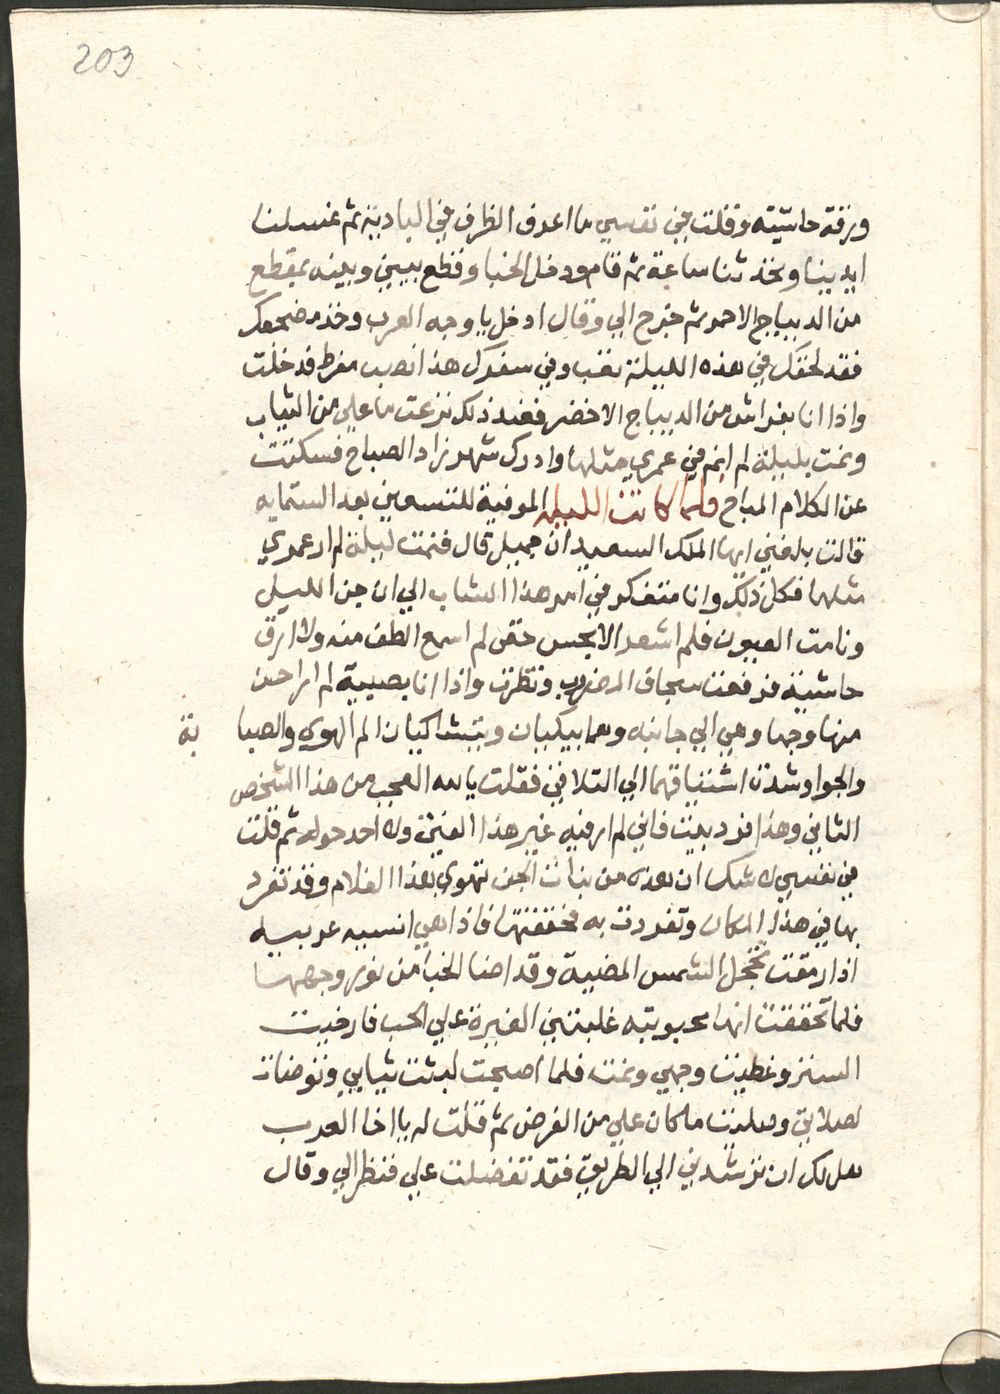 203
ورقة حاشيته وقلت في نفسي ما اعرف الظرف في الباديه ثم غسلنا
ايدينا وتحدثنا ساعة ثم قام ودخل الخبا وقطع بيني وبينه بمقطع
من الديباج الاحمر ثم خرج الي وقال ادخل يا وجه العرب وخذ مضجعك
فقد لحقك في هذه الليلة تعب وفي سفرك هذا نصب مفرط فدخلت
واذا انا بفراش من الديباج الاخضر فعند ذلك نزعت ما علي من الثياب
ونمت بليلة لم انم في عمري مثلها وادرك شهرزاد الصباح فسكتت
عن الكلام المباح فلما كانت الليله الموفية للتسعين بعد الستمايه
قالت بلغني ايها الملك السعيد ان جميل قال فنمت ليلة لم ار عمري
مثلها فكل ذلك وانا متفكر في امر هذا الشاب الي ان جن الليل
ونامت العيون فلم اشعر الا بحس خفي لم اسمع الطف منه ولا ارق
حاشية فرفعت سجاف المضروب ونظرت واذا انا بصبية لم ار احسن
منها وجها وهي الي جانبه وهما يبكيان ويتشاكيان الم الهوي والصبا بة
والجوا وشدة اشتياقهما الي التلاقي فقلت يالله العجب من هذا الشخص
الثاني وهذا فرد بيت فاني لم ار فيه غير هذا الفتي ولا احد حوله ثم قلت
في نفسي لا شك ان هذه من بنات الجن تهوي هذا الغلام وقد تفرد
بها في هذا المكان وتفردت به فحققتها فاذا هي انسيه عربيه
اذا رمقت تخجل الشمس المضية وقد اضا الخبا من نور وجهها
فلما تحققت انها محبوبته غلبتني الغيرة علي الحب فارخيت
الستر وغطيت وجهي ونمت فلما اصبحت لبثت ثيابي وتوضات
لصلاتي وصليت ما كان علي من الفرض ثم قلت له يا اخا العرب
هل لك ان ترشدني الي الطريق فقد تفضلت علي فنظر الي وقال